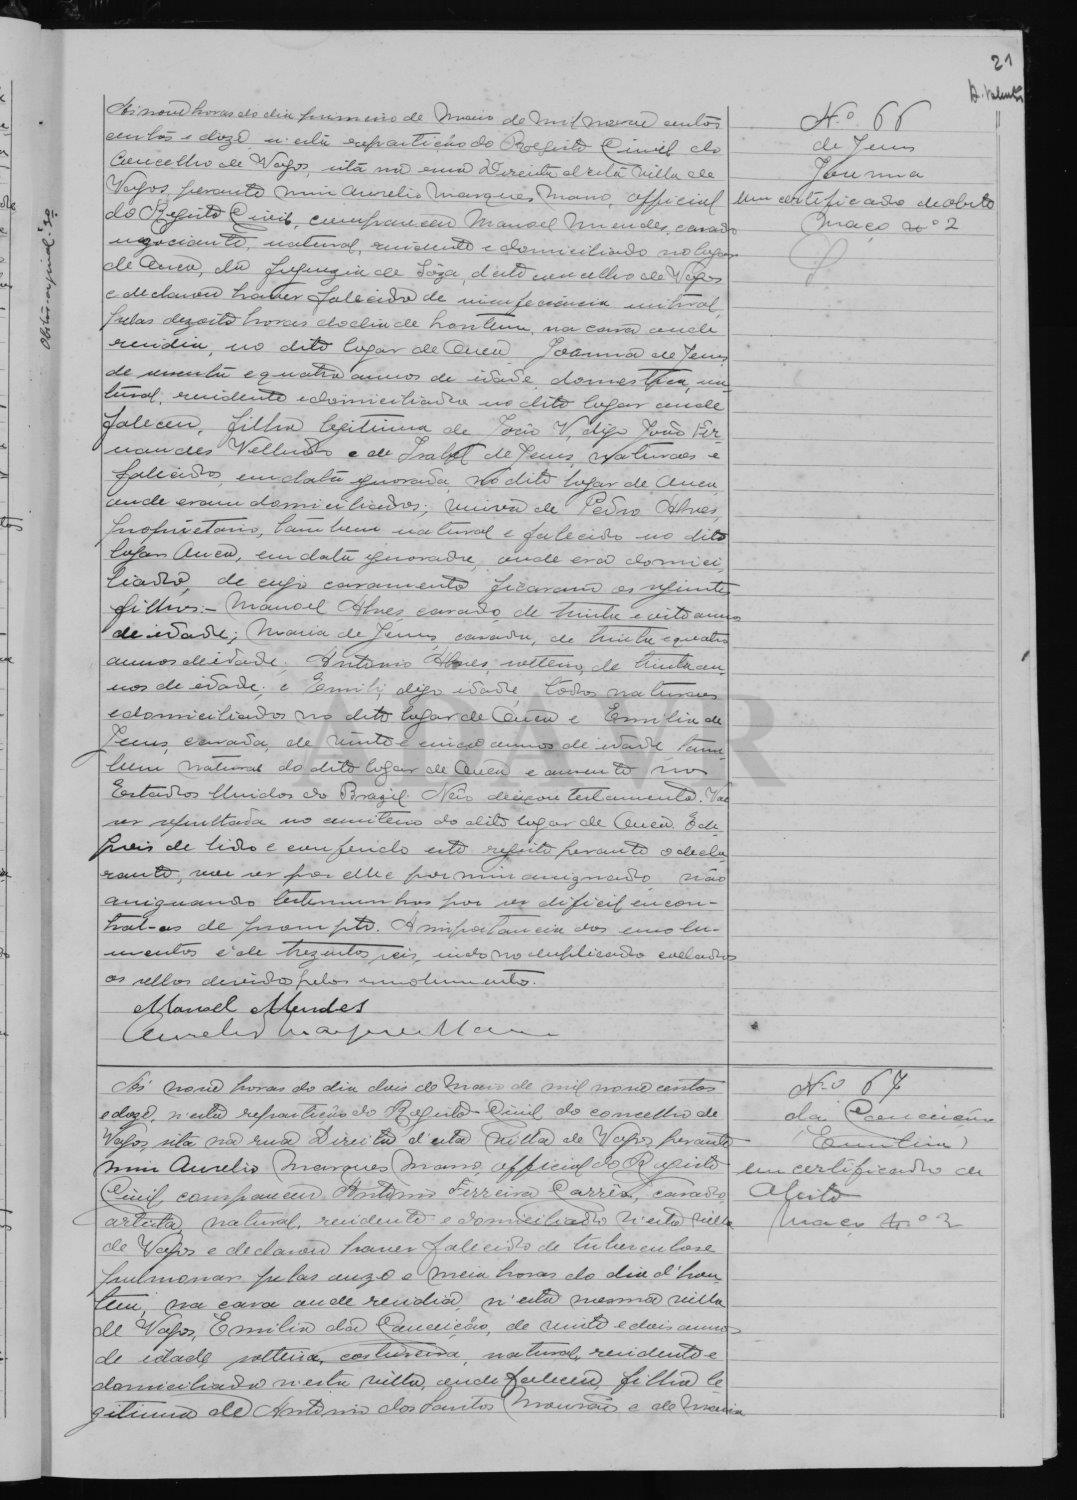 21
Às nove horas do dia primeiro de Maio de mil nove centos
centos e doze n'esta repartição do Registo Civil do
Concelho de Vagos, sita na rua Direita d'esta villa de
Vagos, perante mim Aurelio Marques Mano, official
do Registo Civil, compareceu Manoel Mendes, casado
negociante, natural, residente e domiciliado no logar
de Ouca, da freguezia de Sôza, d'este concelho de Vagos
e declarou haver fallecido de insufficiencia mitral,
pelas dezoito horas do dia de hontem, na casa onde
residia, no dito logar de Ouca Joanna de Jesus
de sessenta e quatro annos de idade, domestica, na-
tural, residente e domiciliada no dito logar onde
faleceu, filha legitima de João V, digo João Fer-
nandes Velludo e de Isabel de Jesus, naturaes e
falecidos, em data ignorada, no dito logar de Ouca
onde eram domiciliados; viuva de Pedro Alves,
proprietario, tambem natural e falecido no dito
logar Ouca, em data ignorada, onde era domici-
liado, de cujo casamento ficaram os seguintes
filhos:- Manoel Alves, casado, de trinta e oito annos
de idade; Maria de Jesus, casada, de trinta e quatro
annos de idade; Antonio Alves, solteiro, de trinta an-
nos de idade; e Emili, digo idade, todos naturaes
e domiciliados no dito logar de Ouca e Emilia de
Jesus, casada, de vinte e cinco annos de idade tam-
bem natural do dito logar de Ouca e ausente nos
Estados Unidos do Brazil. Não deixou testamento. Vae
ser sepultada no cemiterio do dito logar de Ouca. E de-
pois de lido e conferido este registo perante o decla-
rante, vae ser por elle e por mim assignado, não
assignando testemunhas por ser dificil encon-
tral-as de prompto. A importancia dos emolu-
mentos é de trezentos reis, indo no duplicado collados
os sellos devidos pelos emolumentos.
Manoel Mendes
Aurelio Marques Mano
Nº 66
de Jesus
Joanna
Um certificado de obito
Maço nº 2
Às nove horas do dia dois de Maio de mil nove centos
e doze, n'esta repartição do Registo Civil do concelho de
Vagos, sita na rua Direita d'esta villa de Vagos, perante
mim Aurelio Marques Mano, official do Registo
Civil, compareceu Antonio Ferreira, casado,
artista, natural, residente e domiciliado n'esta villa
de Vagos e declarou haver falecido de tuberculose
pulmonar pelas onze e meia horas do dia d'hon-
tem, na casa onde residia, n'esta mesma villa
de Vagos, Emilia da Conceição, de vinte e dois annos
de idade, solteira, costureira, natural, residente e
domiciliada n'esta villa, onde faleceu, filha le-
gitima de Antonio dos Santos Mourão e de Maria
Nº 67
da Conceição
(Emilia)
um certificado de
obito
Maço nº 2
ADAVR